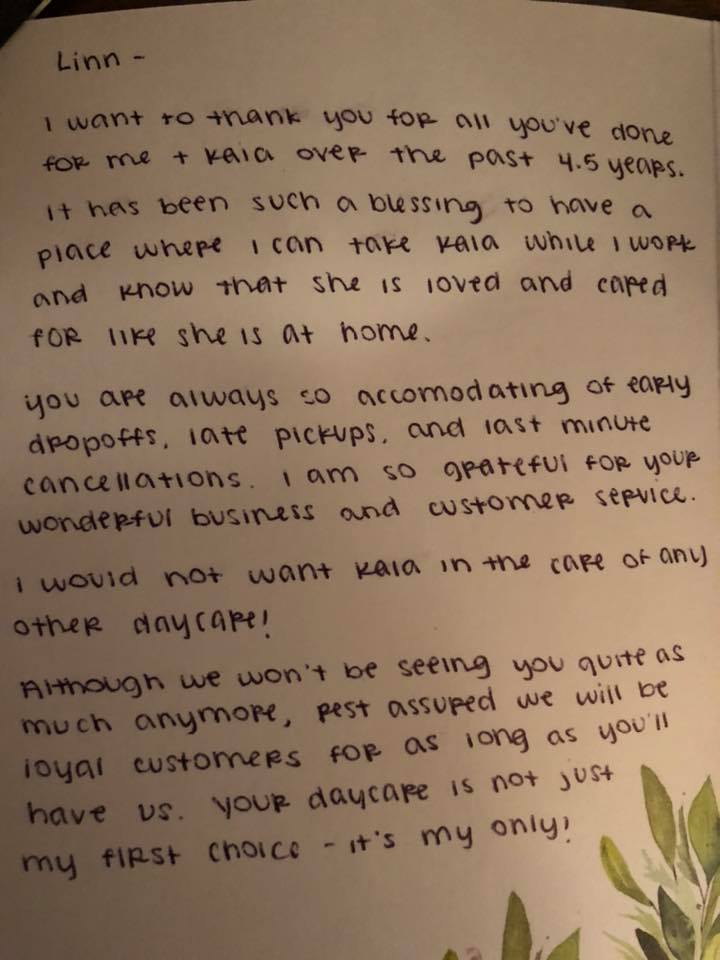 Linn -
I want to thank you for all you've done
for me + Kaia over the past 4.5 years.
It has been such a blessing to have a
place where I can take Kaia while I work
and know that she is loved and cared
for like she is at home.
You are always so accomodating of early
dropoffs, late pickups, and last minute
cancellations. I am so grateful for your
wonderful business and customer service.
I would not want Kaia in the care of any
other daycare!
Although we won't be seeing you quite as
much anymore, rest assured we will be
loyal customers for as long as you'll
have us. Your daycare is not just
my first choice - it's my only!